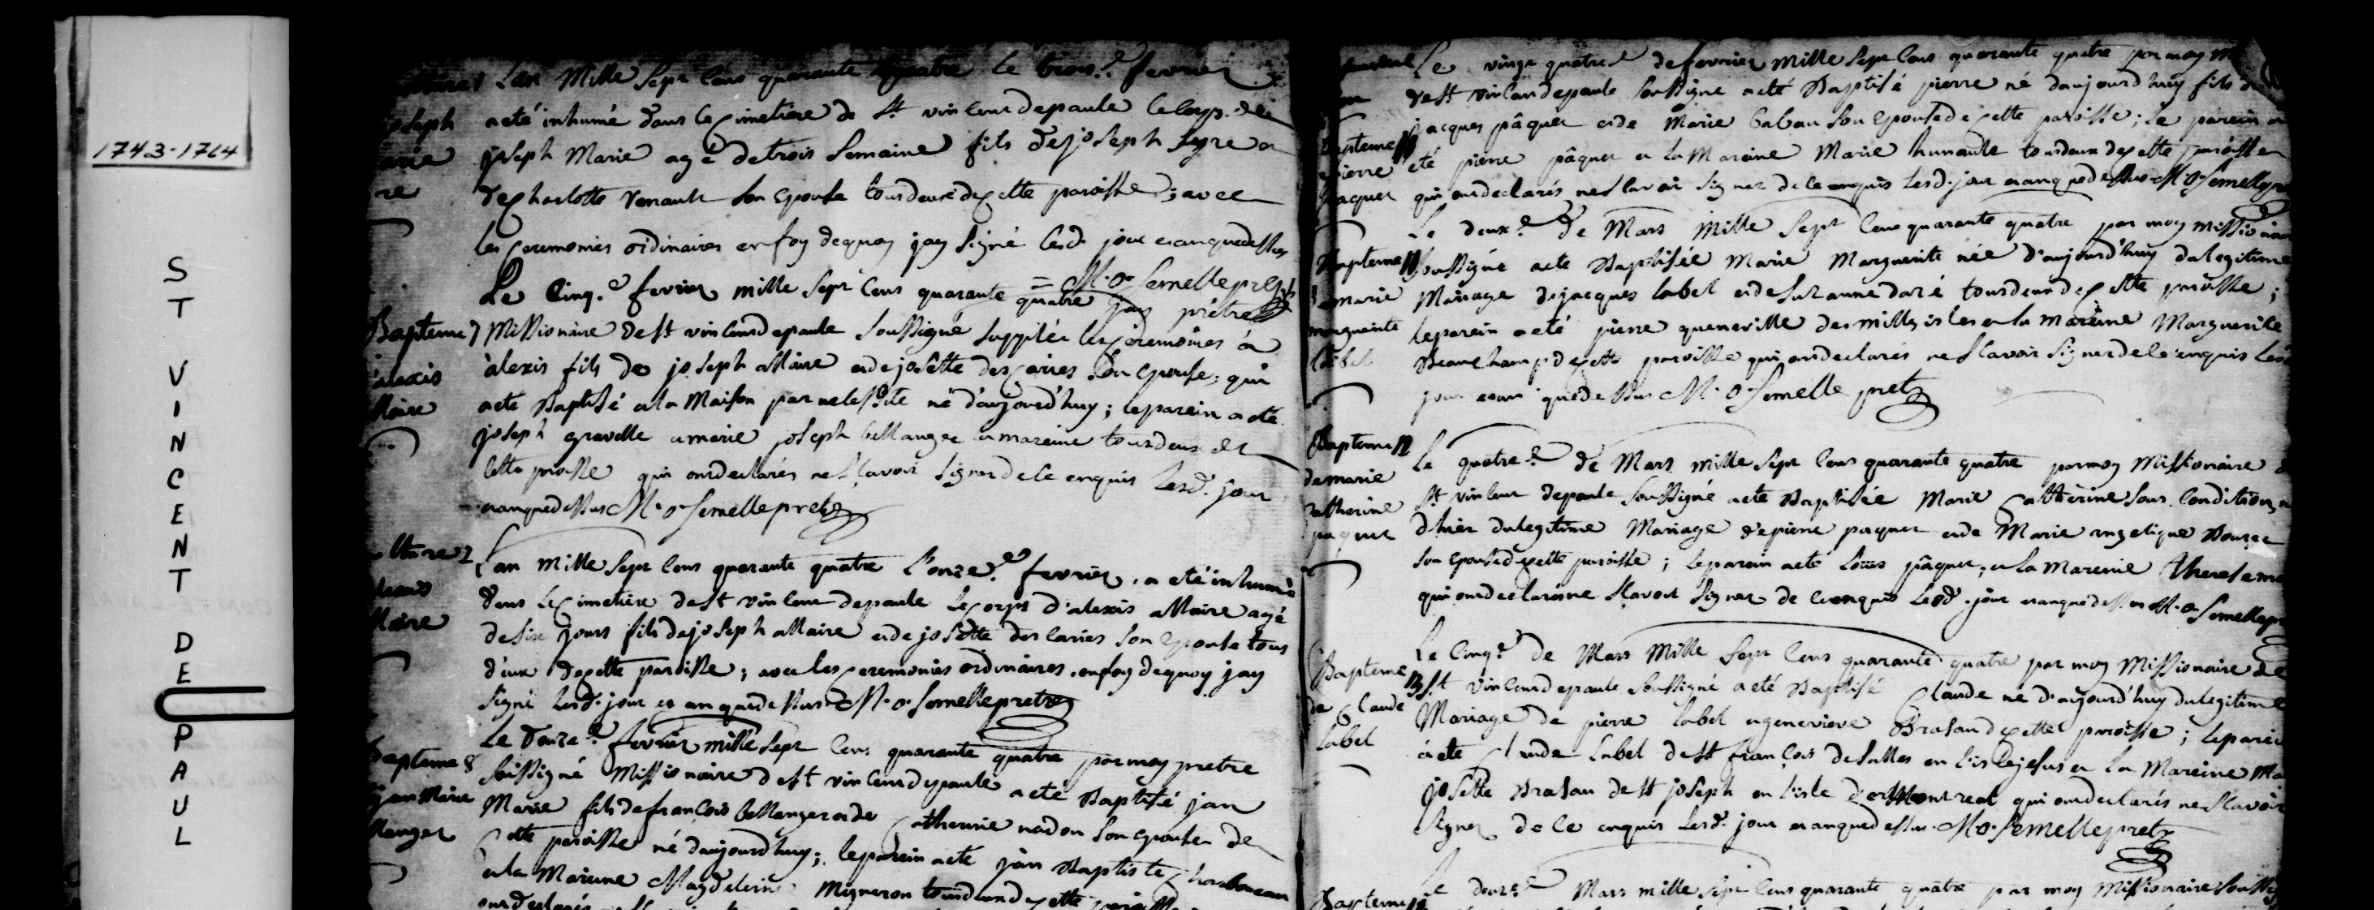 1743-1764
ST VINCENT DE PAUL
L'an Mille Sept Cens quarante quatre le trois.e fevrier
a eté inhumé dans le Cimetiere de St. vincent de paule le Corps de
joseph Marie agé de trois Semaine fils de joseph Syre et
de Charlotte Renault Son Epouse tous deux de Cette paroisse; avec
les Ceremonies ordinaires en foy de quoy jay Signé lesd. jour et an que dessus
= M. o. Semelle pretre
joseph
marie
re
Le Cinq.e fevrier mille Sept Cens quarante quatre jay prêtre
Missionaire de St vincent de paule Soussigné Supplée les Ceremonies à
àlexis fils de joseph allaire et de josette descaries Son Epouse, qui
a eté Baptisé a la Maison par nelessité né d'aujourd'huy; le parein a eté
joseph gravelle a marie joseph bellangee la mareine tous deux de
Cette proisse qui ont declarés ne Sçavoir Signer de Ce enquis Lesd. jour
et an que dessus M. o. Semelle pretre
Bapteme 7
d'alexis
allaire
L'an mille Sept Cens quarante quatre l'onze.e fevrier. a eté inhumé
dans le Cimetiere de St vincent de paule le Corps d'alexis allaire agé
de six jours fils de joseph allaire et de josette des Caries Son Epouse tous
d'eux de Cette paroisse; avec les Ceremonies ordinaires. en foy de quoy jay
Signé lesd. jour et an que de Sus M. o. Semelle pretre
allaire
Le Douze.e fevrier mille Sept Cens quarante quatre par moy pretre
Soussigné Missionaire de St vincent de paule a eté Baptisé jan
Marie fils de francois bellanger et de Catherine nadon Son Epouse de
Cette paroisse né d'aujourd'huy; le parein a eté jan Baptiste Charbonneau
et la Mareine Magdeleine Migneron tous deux de Cette paroisse
ont declarés
Bapteme 8
jan Marie
bellanger
Le vingt quatre.e de fevrier mille Sept Cens quarante quatre par moy
de St vincent de paule Soussigné a eté Baptisé pierre né d'aujourd'huy fils de
jacques pâquet et de Marie Labau Son Epouse de Cette paroisse; le parein a
eté pierre pâquet et la Mareine Marie hunaute tous deux de Cette paroisse
qui ont declarés ne Scavoir Signer de Ce enquis lesd. jour et an que dessus M. o. Semelle
Bapteme
pierre
paquet
Le deux.e de Mars mille Sept Cens quarante quatre par moy missionaire
Soussigné a eté Baptisée Marie Marguerite née d'aujourd'huy du legitime
Mariage de jacques label et de Suzanne daré tous deux de Cette paroisse;
le parein a eté pierre queneville des milles isles et la mareine Marguerite
Beauchamp de Cette paroisse qui ont declarés ne Scavoir Signer de Ce enquis les
jour et an que dessus M. o. Semelle pretre
Bapteme 11
de marie
marguerite
label
Le quatre.e de Mars mille Sept Cens quarante quatre par moy Missionaire
St vincent de paule Soussigné a eté Baptisée Marie Catherine Sous Condition
d'hier du legitime Mariage de pierre paquet et de Marie angelique
Son Epouse de Cette paroisse; le parein a eté Louis pâquet; et la Mareine Therese
qui ont declarés ne Scavoir Signer de Ce enquis lesd. jour et an que dessus M. o. Semelle
Bapteme 12
de marie
Catherine
paquet
Le Cinq.e de Mars Mille Sept Cens quarante quatre par moy Missionaire de
St vincent de paule Soussigné a eté Baptisé Claude né d'aujourd'huy du legitime
Mariage de pierre label et genevieve Brasau de Cette paroisse; le parein
a eté Claude Label de St françois de Salles en l'isle jesus et la Mareine
josette Brasau de St joseph en l'isle de Montreal qui ont declarés ne Scavoir
Signer de Ce enquis lesd. jour et an que dessus. M. o. Semelle pretre
Bapteme 13
de Claude
Label
Le douze.e Mars mille Sept Cens quarante quatre par moy Missionaire
Bapteme